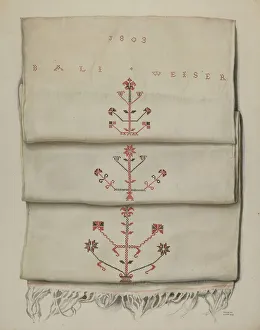 1803
BALI + WEISER